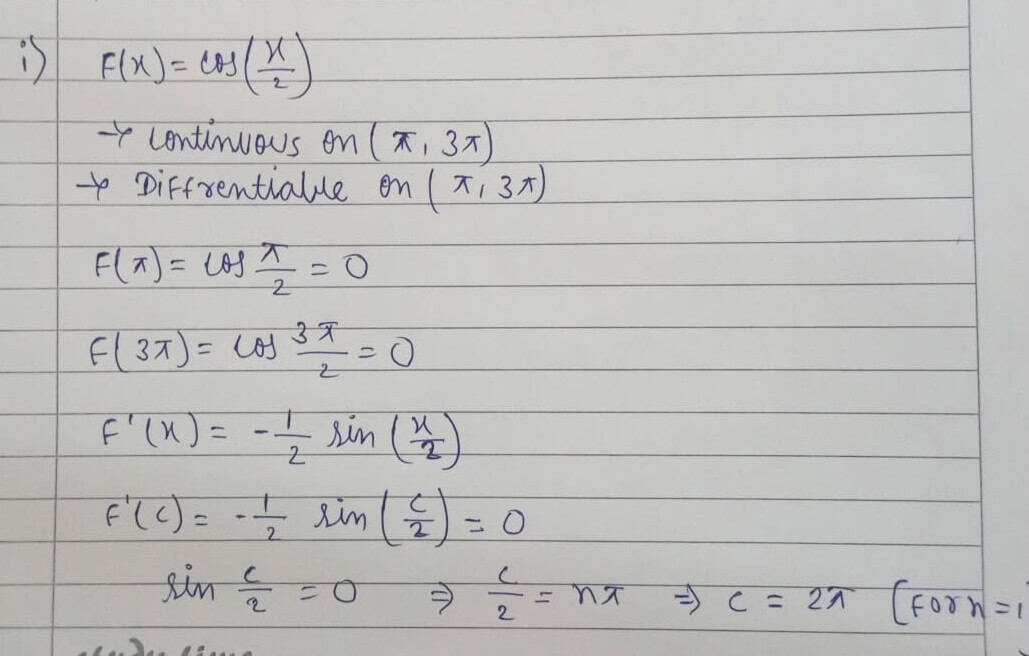 i) F(x) = cos(x/2)
→ continuous on (π, 3π)
→ Diffrentiable on (π, 3π)
F(π) = cos π/2 = 0
F(3π) = cos 3π/2 = 0
F'(x) = -1/2 sin (x/2)
F'(c) = -1/2 sin (c/2) = 0
sin c/2 = 0 ⇒ c/2 = nπ ⇒ c = 2π [For n = 1